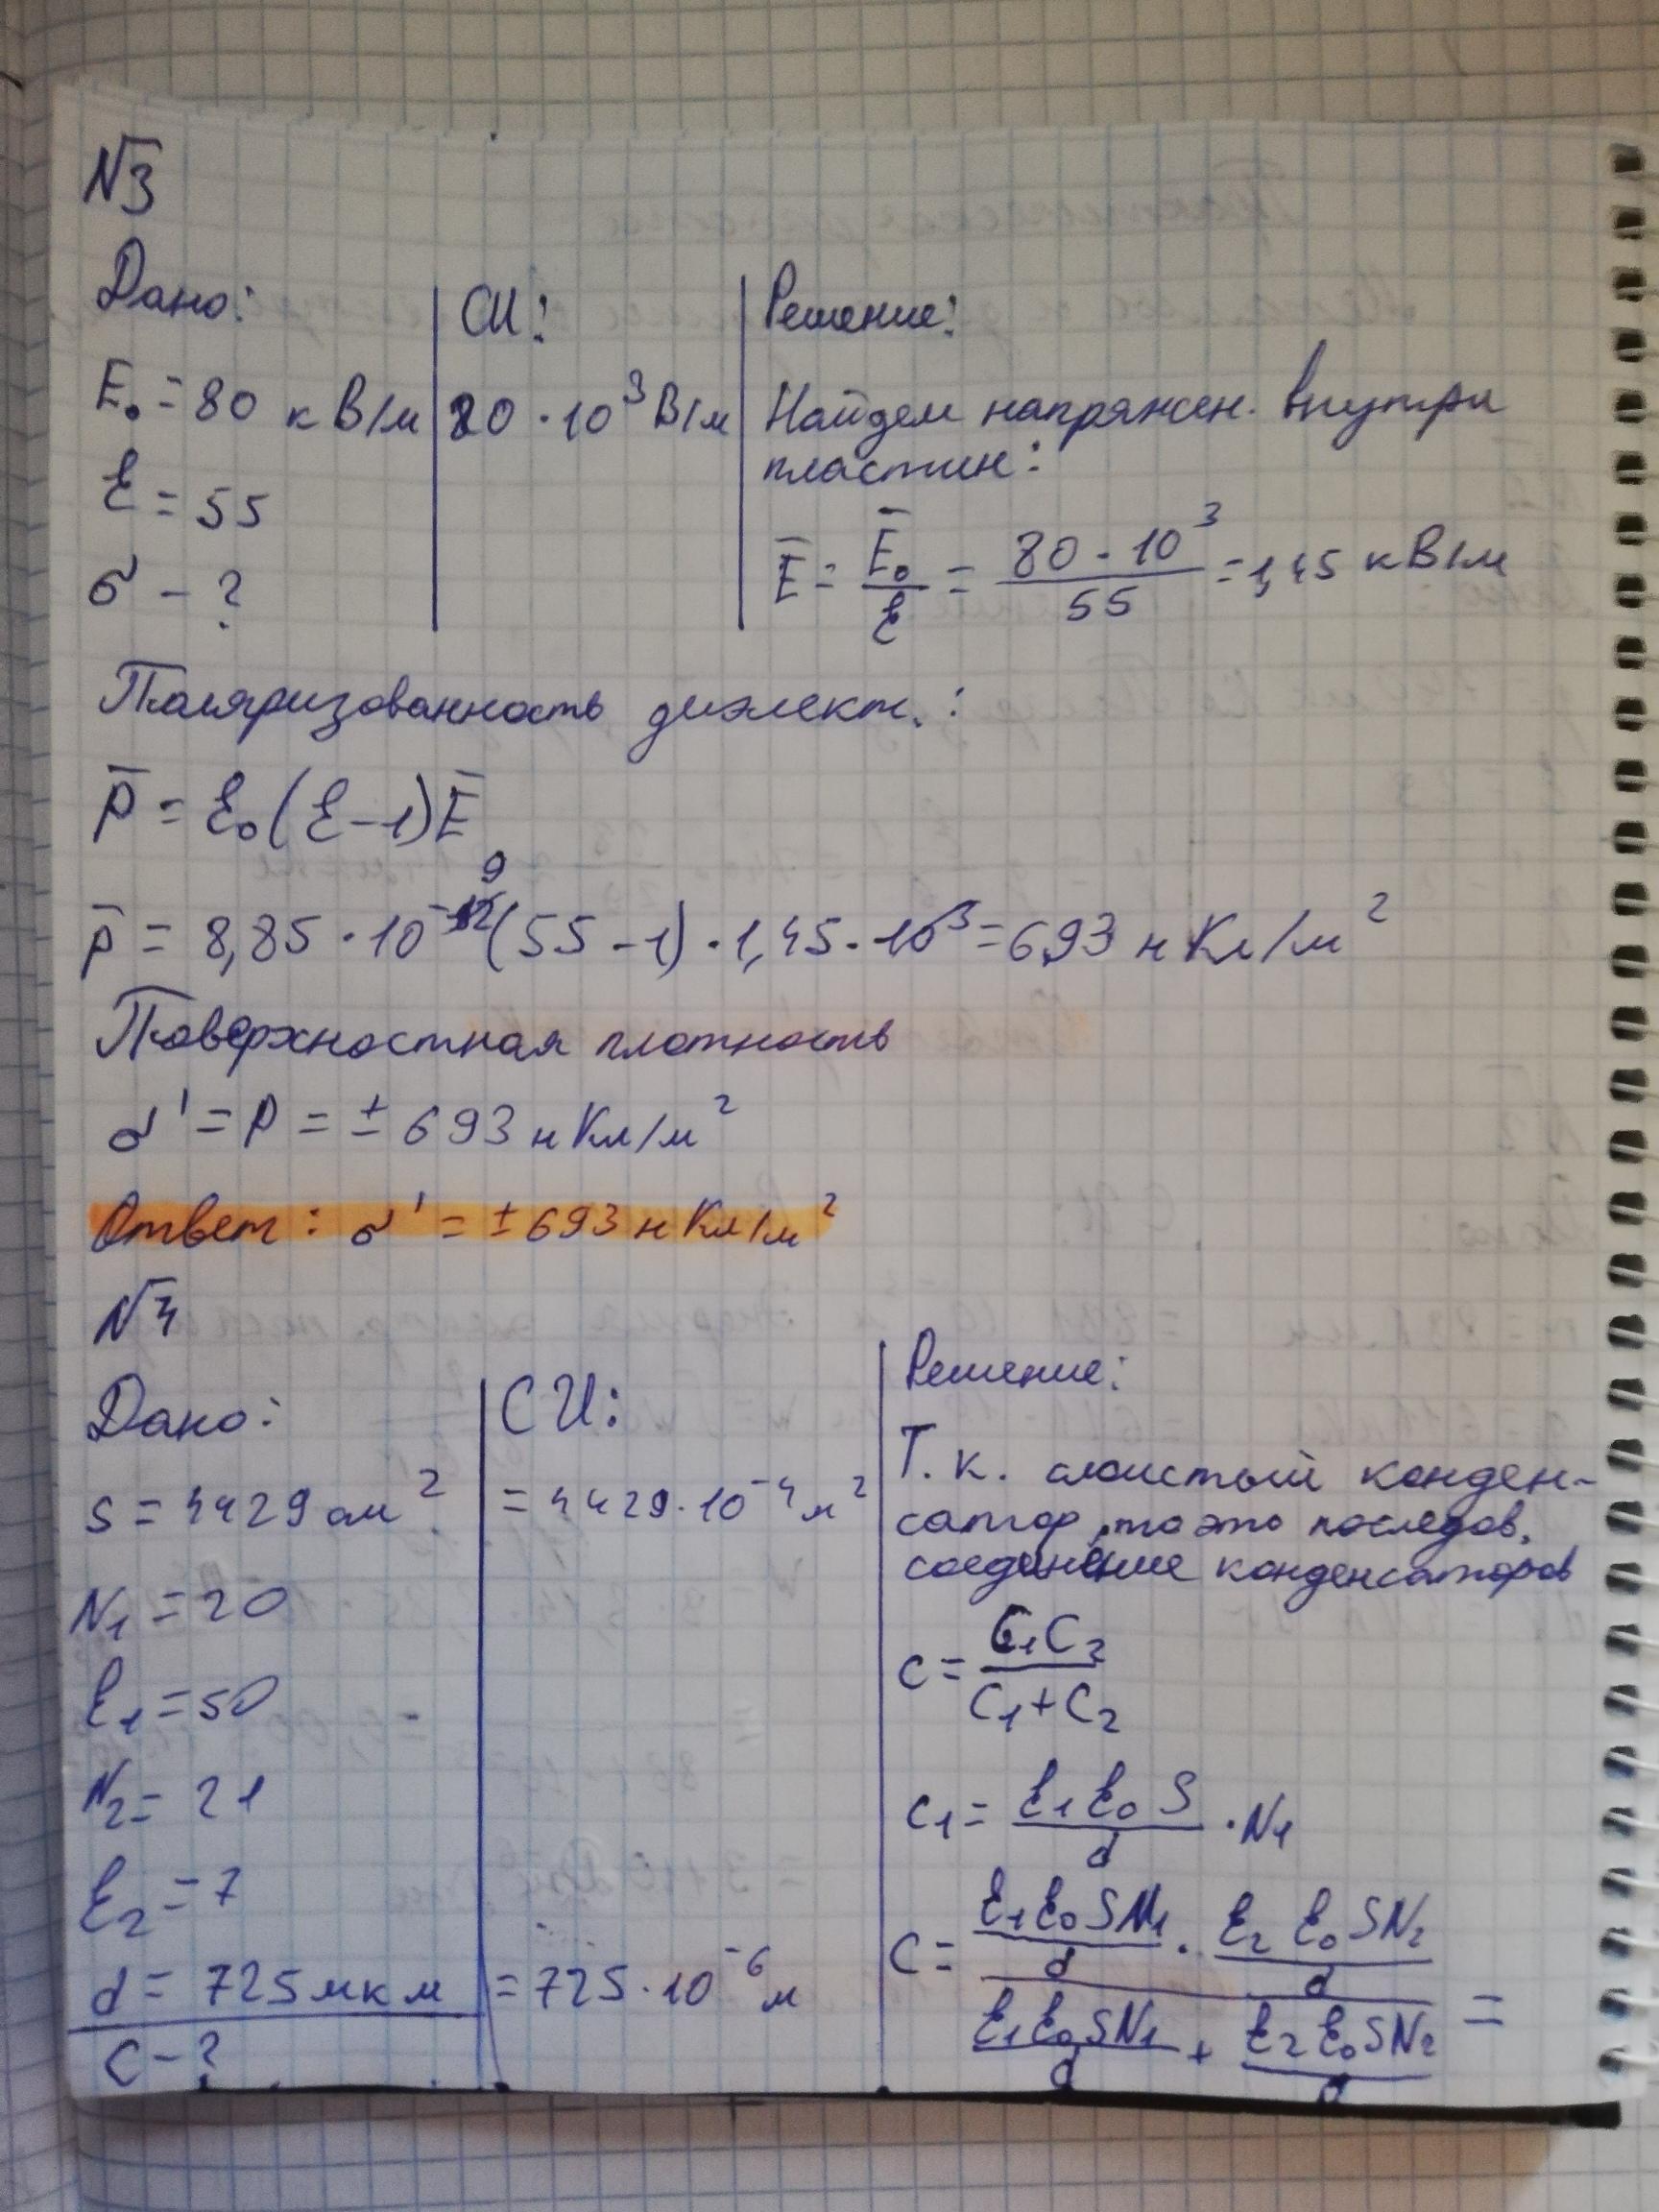 №3
Дано:
E₀ = 80 кВ/м
ℰ = 55
σ - ?
СИ:
80 · 10³ В/м
Решение:
Найдем напряжен. внутри
пластин:
E̅ = E̅₀/ℰ = 80 · 10³/55 = 1,45 кВ/м
Поляризованность диэлект.:
p̅ = ℰ₀(ℰ-1)E̅
p̅ = 8,85 · 10⁻ (55-1) · 1,45 · 10³ = 693 нКл/м²
Поверхностная плотность
σ' = p = ± 693 нКл/м²
Ответ: σ' = ± 693 нКл/м²
№4
Дано:
s = 4429 см²
N₁ = 20
ℰ₁ = 50
N₂ = 21
ℰ₂ = 7
d = 725 мкм
C - ?
СИ:
= 4429 · 10⁻⁴ м²
= 725 · 10⁻⁶ м
Решение:
Т. к. слоистый конден-
сатор, то это последов.
соединение конденсаторов
C = C₁C₂/(C₁+C₂)
C₁ = ℰ₁ℰ₀S/d · N₁
C = (ℰ₁ℰ₀SN₁/d · ℰ₂ℰ₀SN₂/d)/(ℰ₁ℰ₀SN₁/d + ℰ₂ℰ₀SN₂/d) =